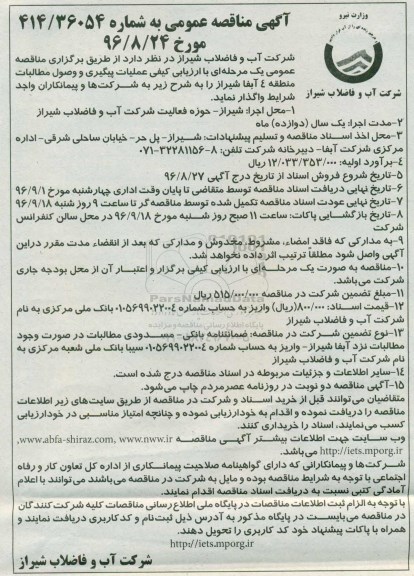 وزارت نیرو
شرکت آب و فاضلاب شیراز
آگهی مناقصه عمومی به شماره ۴۱۴/۳۶۰۵۴
مورخ ۹۶/۸/۲۴
شرکت آب و فاضلاب شیراز در نظر دارد از طریق برگزاری مناقصه
عمومی یک مرحله‌ای با ارزیابی کیفی عملیات پیگیری و وصول مطالبات
منطقه ٤ آبفا شیراز را به شرح زیر به شرکت‌ها و پیمانکاران واجد
شرایط واگذار نماید.
۱-محل اجرا: شیراز- حوزه فعالیت شرکت آب و فاضلاب شیراز
۲-مدت اجرا: یک سال (دوازده) ماه
۳-محل اخذ اسناد مناقصه و تسلیم پیشنهادات: شیراز- پل حر- خیابان ساحلی شرقی- اداره
مرکزی شرکت آبفا- دبیرخانه شرکت تلفن: ۸-۳۲۲۸۱۱۵۶-۰۷۱
۴-برآورد اولیه: ۱۲/۰۳۳/۳۵۳/۰۰۰ ریال
۵-تاریخ شروع فروش اسناد از تاریخ درج آگهی ۹۶/۸/۲۷
۶-تاریخ نهایی دریافت اسناد مناقصه توسط متقاضی تا پایان وقت اداری چهارشنبه مورخ ۹۶/۹/۱
۷-تاریخ نهایی عودت اسناد مناقصه تکمیل شده توسط مناقصه گر تا ساعت ۹ روز شنبه ۹۶/۹/۱۸
۸-تاریخ بازگشایی پاکات: ساعت ۱۱ صبح روز شنبه مورخ ۹۶/۹/۱۸ در محل سالن کنفرانس
شرکت
۹-به مدارکی که فاقد امضاء، مشروط، مخدوش و مدارکی که بعد از انقضاء مدت مقرر در این
آگهی واصل شود مطلقاً ترتیب اثر داده نخواهد شد.
۱۰-مناقصه به صورت یک مرحله‌ای با ارزیابی کیفی برگزار و اعتبار آن از محل بودجه جاری
شرکت می‌باشد.
۱۱-مبلغ تضمین شرکت در مناقصه ۵۱۵/۰۰۰/۰۰۰ ریال
۱۲-قیمت اسناد: ۸۰۰/۰۰۰(ریال) واریز به حساب شماره ۰۱۰۵۶۹۹۰۲۲۰۰٤ بانک ملی مرکزی به نام
شرکت آب و فاضلاب شیراز
۱۳-نوع تضمین شرکت در مناقصه: ضمانتنامه بانکی- مسدودی مطالبات در صورت وجود
مطالبات نزد آبفا شیراز- واریز به حساب شماره ۰۱۰۵۶۹۹۰۲۲۰۰٤ سیبا بانک ملی شعبه مرکزی به
نام شرکت آب و فاضلاب شیراز
۱۴-سایر اطلاعات و جزئیات مربوطه در اسناد مناقصه درج شده است.
۱۵-آگهی مناقصه دو نوبت در روزنامه عصر مردم چاپ می‌شود.
متقاضیان می‌توانند قبل از خرید اسناد و شرکت در مناقصه از طریق سایت‌های زیر اطلاعات
مناقصه را دریافت نموده و اقدام به خودارزیابی نموده و چنانچه امتیاز مناسبی در خودارزیابی
کسب می‌نمایند، اسناد را خریداری کنند.
وب سایت جهت اطلاعات بیشتر آگهی مناقصه www.abfa-shiraz.com, www.nww.ir,
http://iets.mporg.ir می‌باشد.
شرکت‌ها و پیمانکارانی که دارای گواهینامه صلاحیت پیمانکاری از اداره کل تعاون کار و رفاه
اجتماعی با توجه به شرایط مناقصه بوده و مایل به شرکت در مناقصه می‌باشند می‌توانند با اعلام
آمادگی کتبی نسبت به دریافت اسناد مناقصه اقدام نمایند.
با توجه به الزام ثبت اطلاعات مناقصات در پایگاه ملی اطلاع رسانی مناقصات کلیه شرکت کنندگان
در مناقصه می‌بایست در پایگاه مذکور به آدرس ذیل ثبت نام و کد کاربری دریافت نمایند و
همراه با پاکات پیشنهاد خود کد کاربری را تحویل دهند.
http://iets.mporg.ir
شرکت آب و فاضلاب شیراز